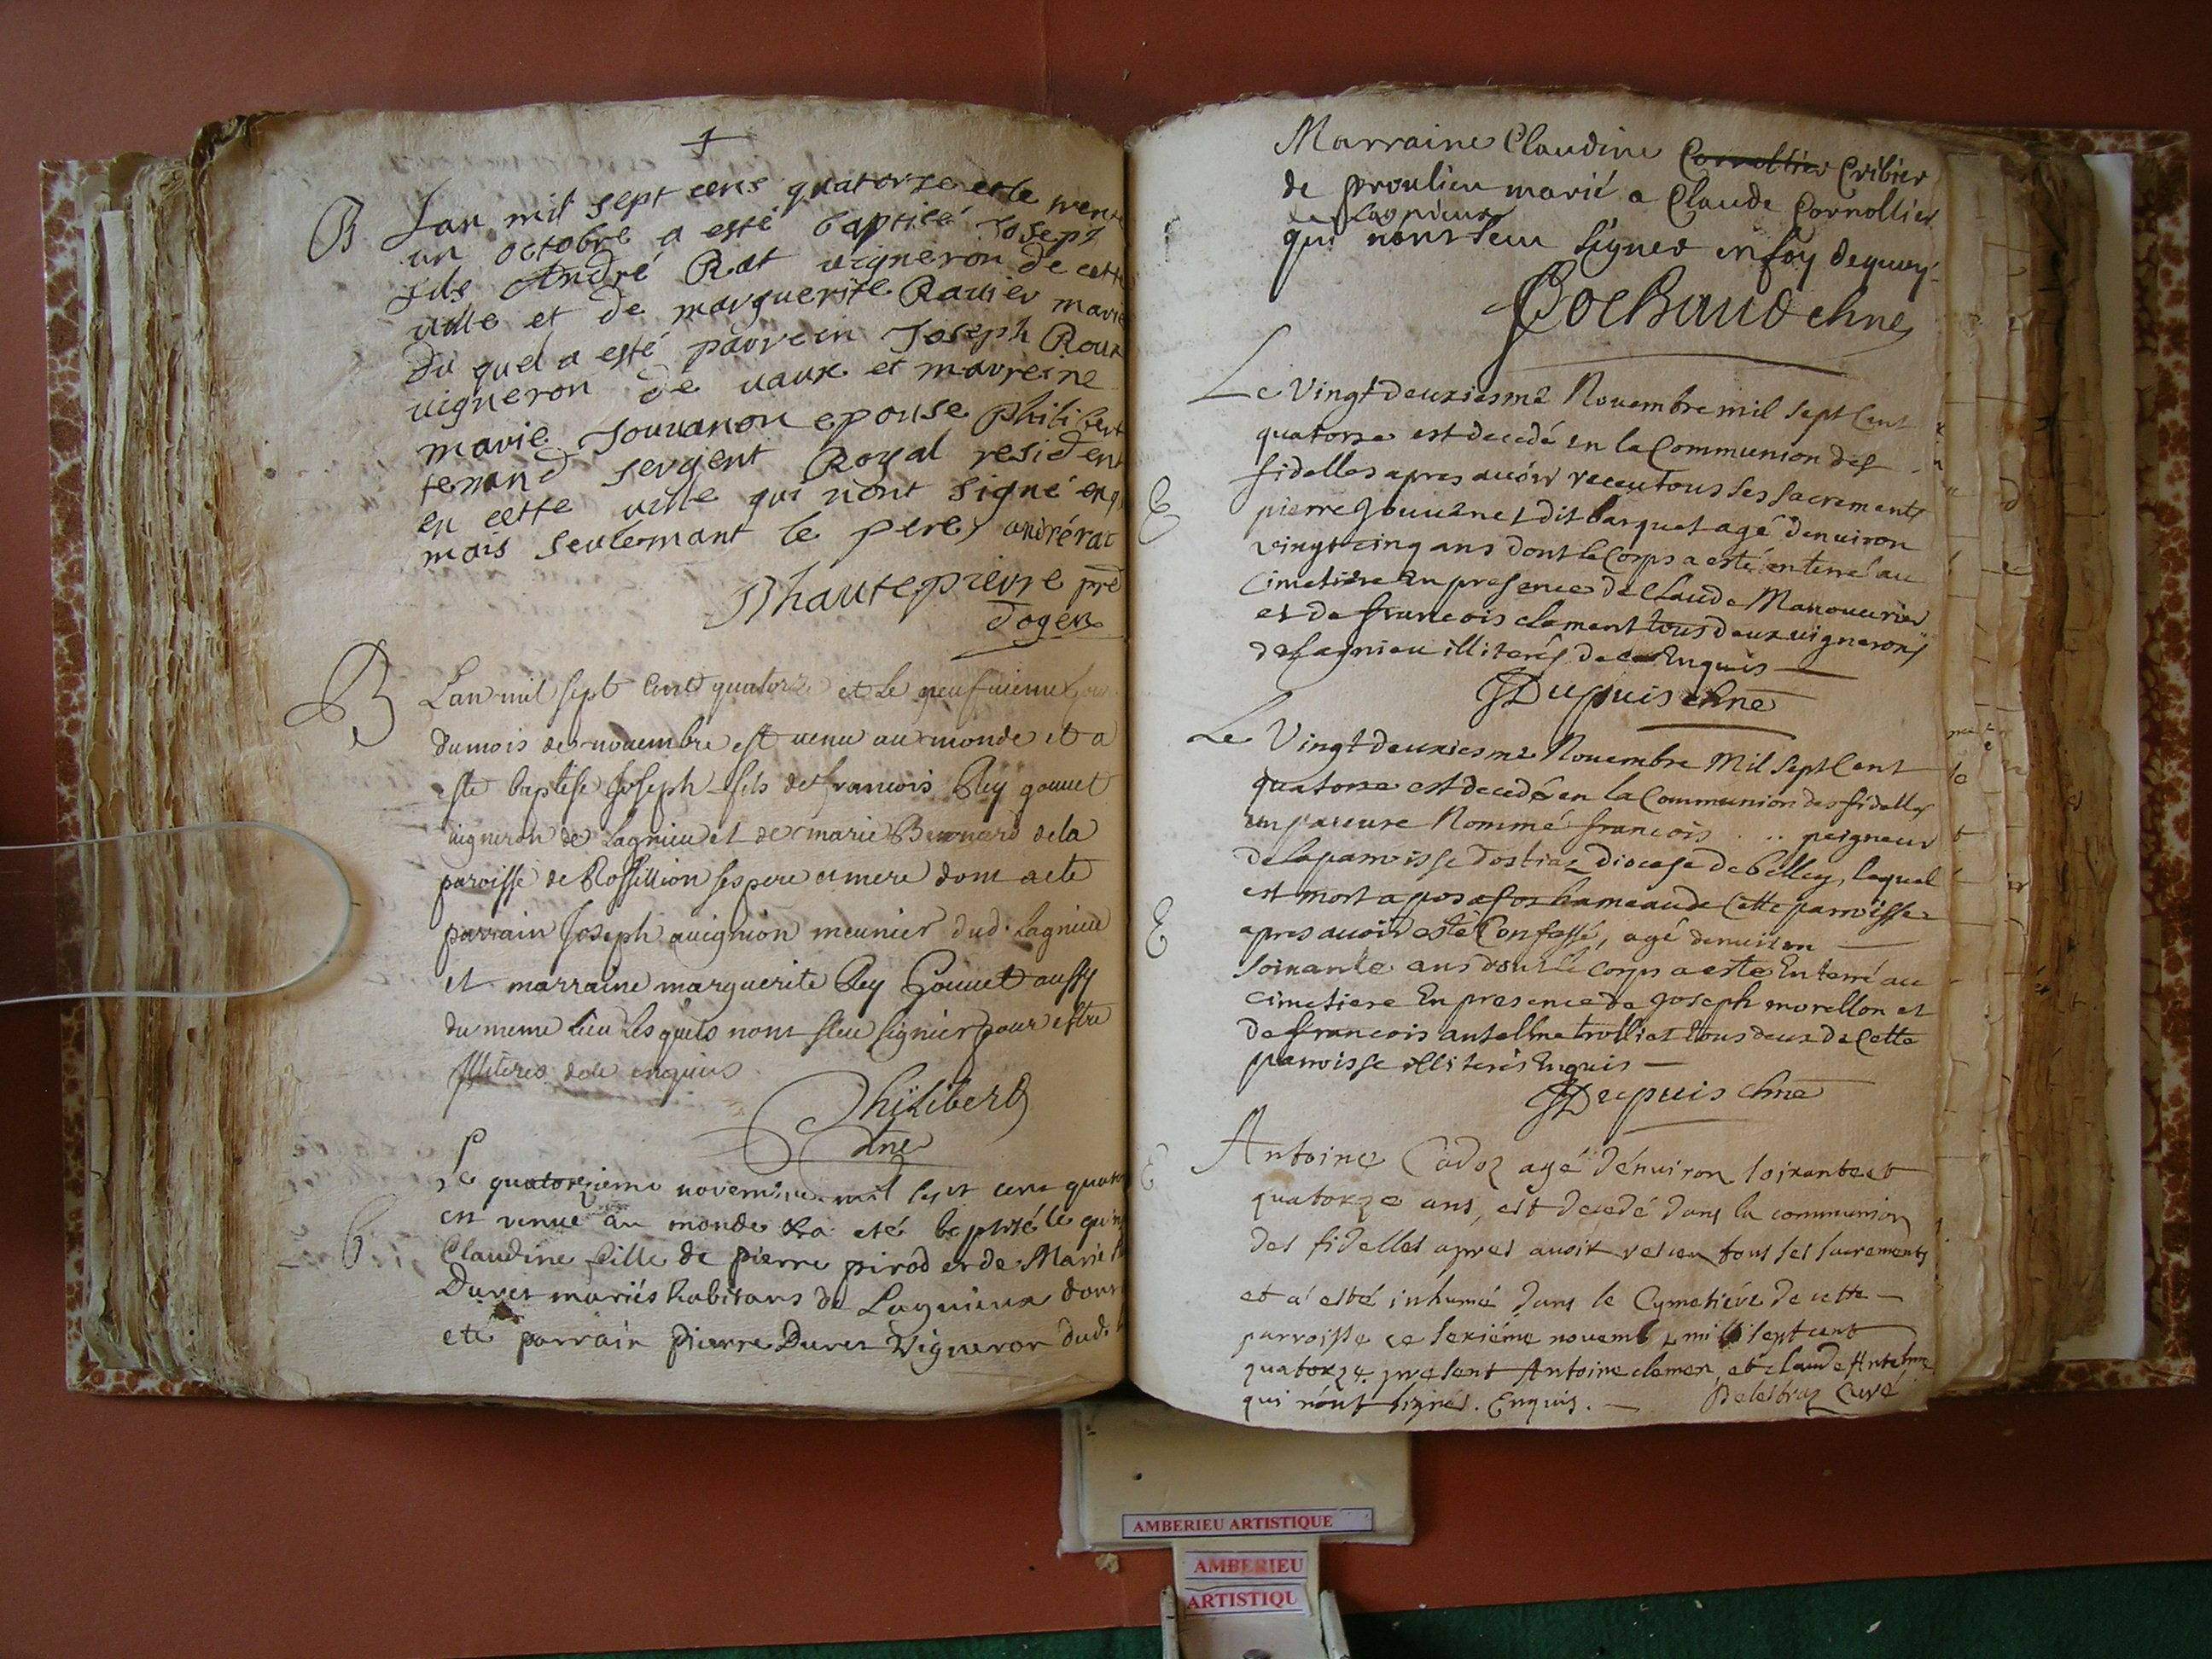 B Lan mil sept cens quatorze et le trente
un octobre a esté baptisé Joseph
fils André Rat vigneron de cette
ville et de marguerite Ravier marié
du quel a esté parrein Joseph Roux
vigneron de vaux et marreine
marie Jouvanon epouse philibert
tenand sergent Royal resident
en cette ville qui nont signé enq
mais seulemant le pere andré rat
Dhautepierre pre
d'ogers
B Lan mil sept Cent quatorze et le neufvieme jour
du mois de novembre est venu au monde et a
este baptise Joseph fils de francois Rey gouuet
vigneron de Lagnieu et de marie Bernard de la
paroisse de Rossillion ses pere et mere dont a ete
parrain Joseph auignion meunier dud. Lagnieu
et marraine marguerite Rey Gouuet aussy
du meme lieu lesquels nont sceu signier pour estre
Illiteres de ce enquis
Philibert
chne
Le quatorzieme novembre mil sept cent quator
est venue au monde & a eté baptisé le quin
B Claudine fille de pierre pirod et de Marie
Duret mariés habitans de Lagnieux dont
eté parrain pierre Duret Vigneron dud.
Marraine Claudine Cornollier Cribier
de proulieu marié a Claude Cornollier
de Lagnieux
qui nont sceu signer en foy de quoy
Cochaud chne
Le Vingtdeuxiesme Nouembre mil sept Cent
quatorse est decedé en la Communion des
fidelles apres auoir receu tous ses sacrements
E pierre Jouuenet dit barquet agé denuiron
vingt cinq ans dont le Corps a esté enterré au
Cimetiere En presence de Claude Manouurier
et de francois clement tous deux vignerons
de Lagnieu illiterés de ce Enquis
JDupuis chne
Le Vingtdeuxiesme Nouembre Mil Sept Cent
quatorse est decedé en la Communion des fidelles
un pauure Nommé francois .. peigneur
de la parroisse dostiaz Diocese de belley, lequel
est mort a posafol hameau de Cette parroisse
E apres auoir esté Confessé, agé denuiron
soixante ans dont le corps a esté Enterré au
cimetiere En presence de Joseph morellon et
de francois antelme trolliet tous deux de Cette
parroisse illiterés Enquis
JDupuis chne
E Antoine Cadoz agé d'enuiron soixante et
quatorze ans, est decedé dans la communion
des fidelles apres auoir receu tous ses sacrements
et a esté inhumé dans le Cymetiere de cette
parroisse ce sexiéme novemb. mil sept cent
quatorze. present Antoine clemen et claude Antelme
qui n'ont signés. Enquis. Delesbraz Curé
AMBERIEU ARTISTIQUE
AMBERIEU
ARTISTIQU